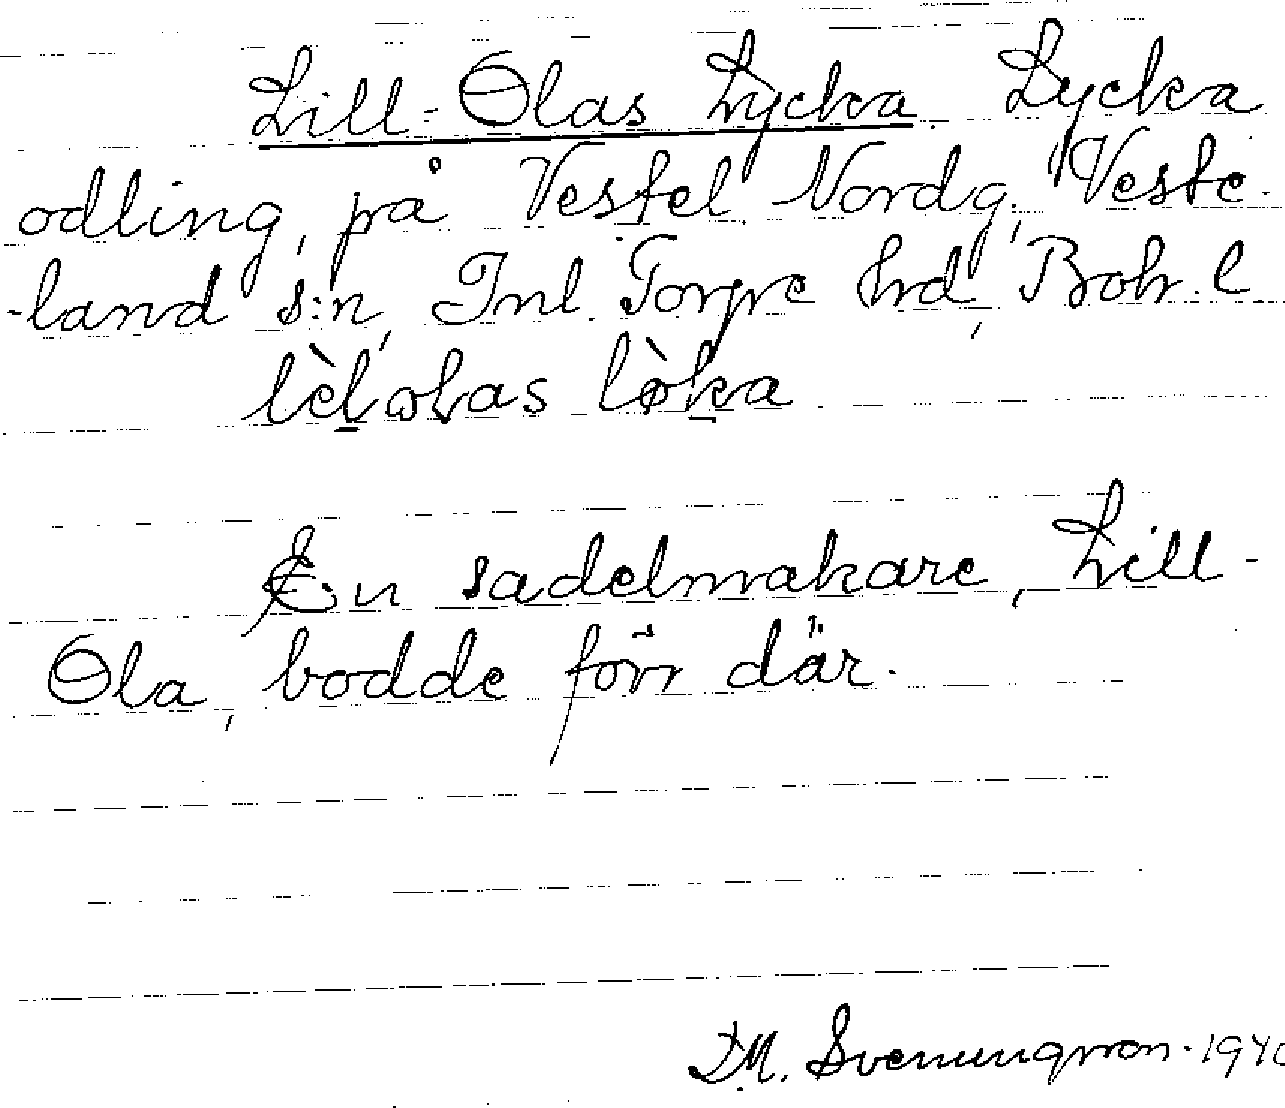 Lill-Olas Lycka Lycka
odling, på Vestel Nordg, Veste-
-land s:n, Inl. Torpe hrd, Boh. l
lèlolas lòka
En sadelmakare, Lill-
Ola, bodde förr där.
D.M. Svenungsson. 1940